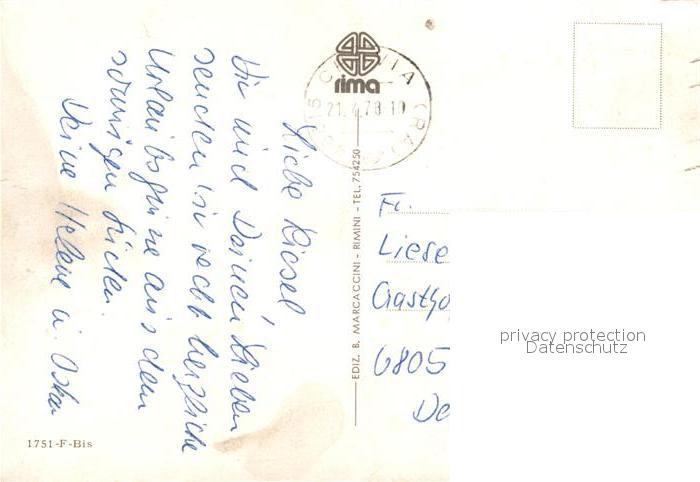 Liebe Liesel
Dir und Deinen Lieben
senden wir recht herzliche
Urlaubsgrüße aus dem
sonnigen Süden.
Deine Helene u. Oskar
rima
CERVIA (RA)
21. 7.78-19
EDIZ. B. MARCACCINI - RIMINI - TEL. 754250
Fr.
Liese
Gastho
6805
De
privacy protection
Datenschutz
1751-F-Bis